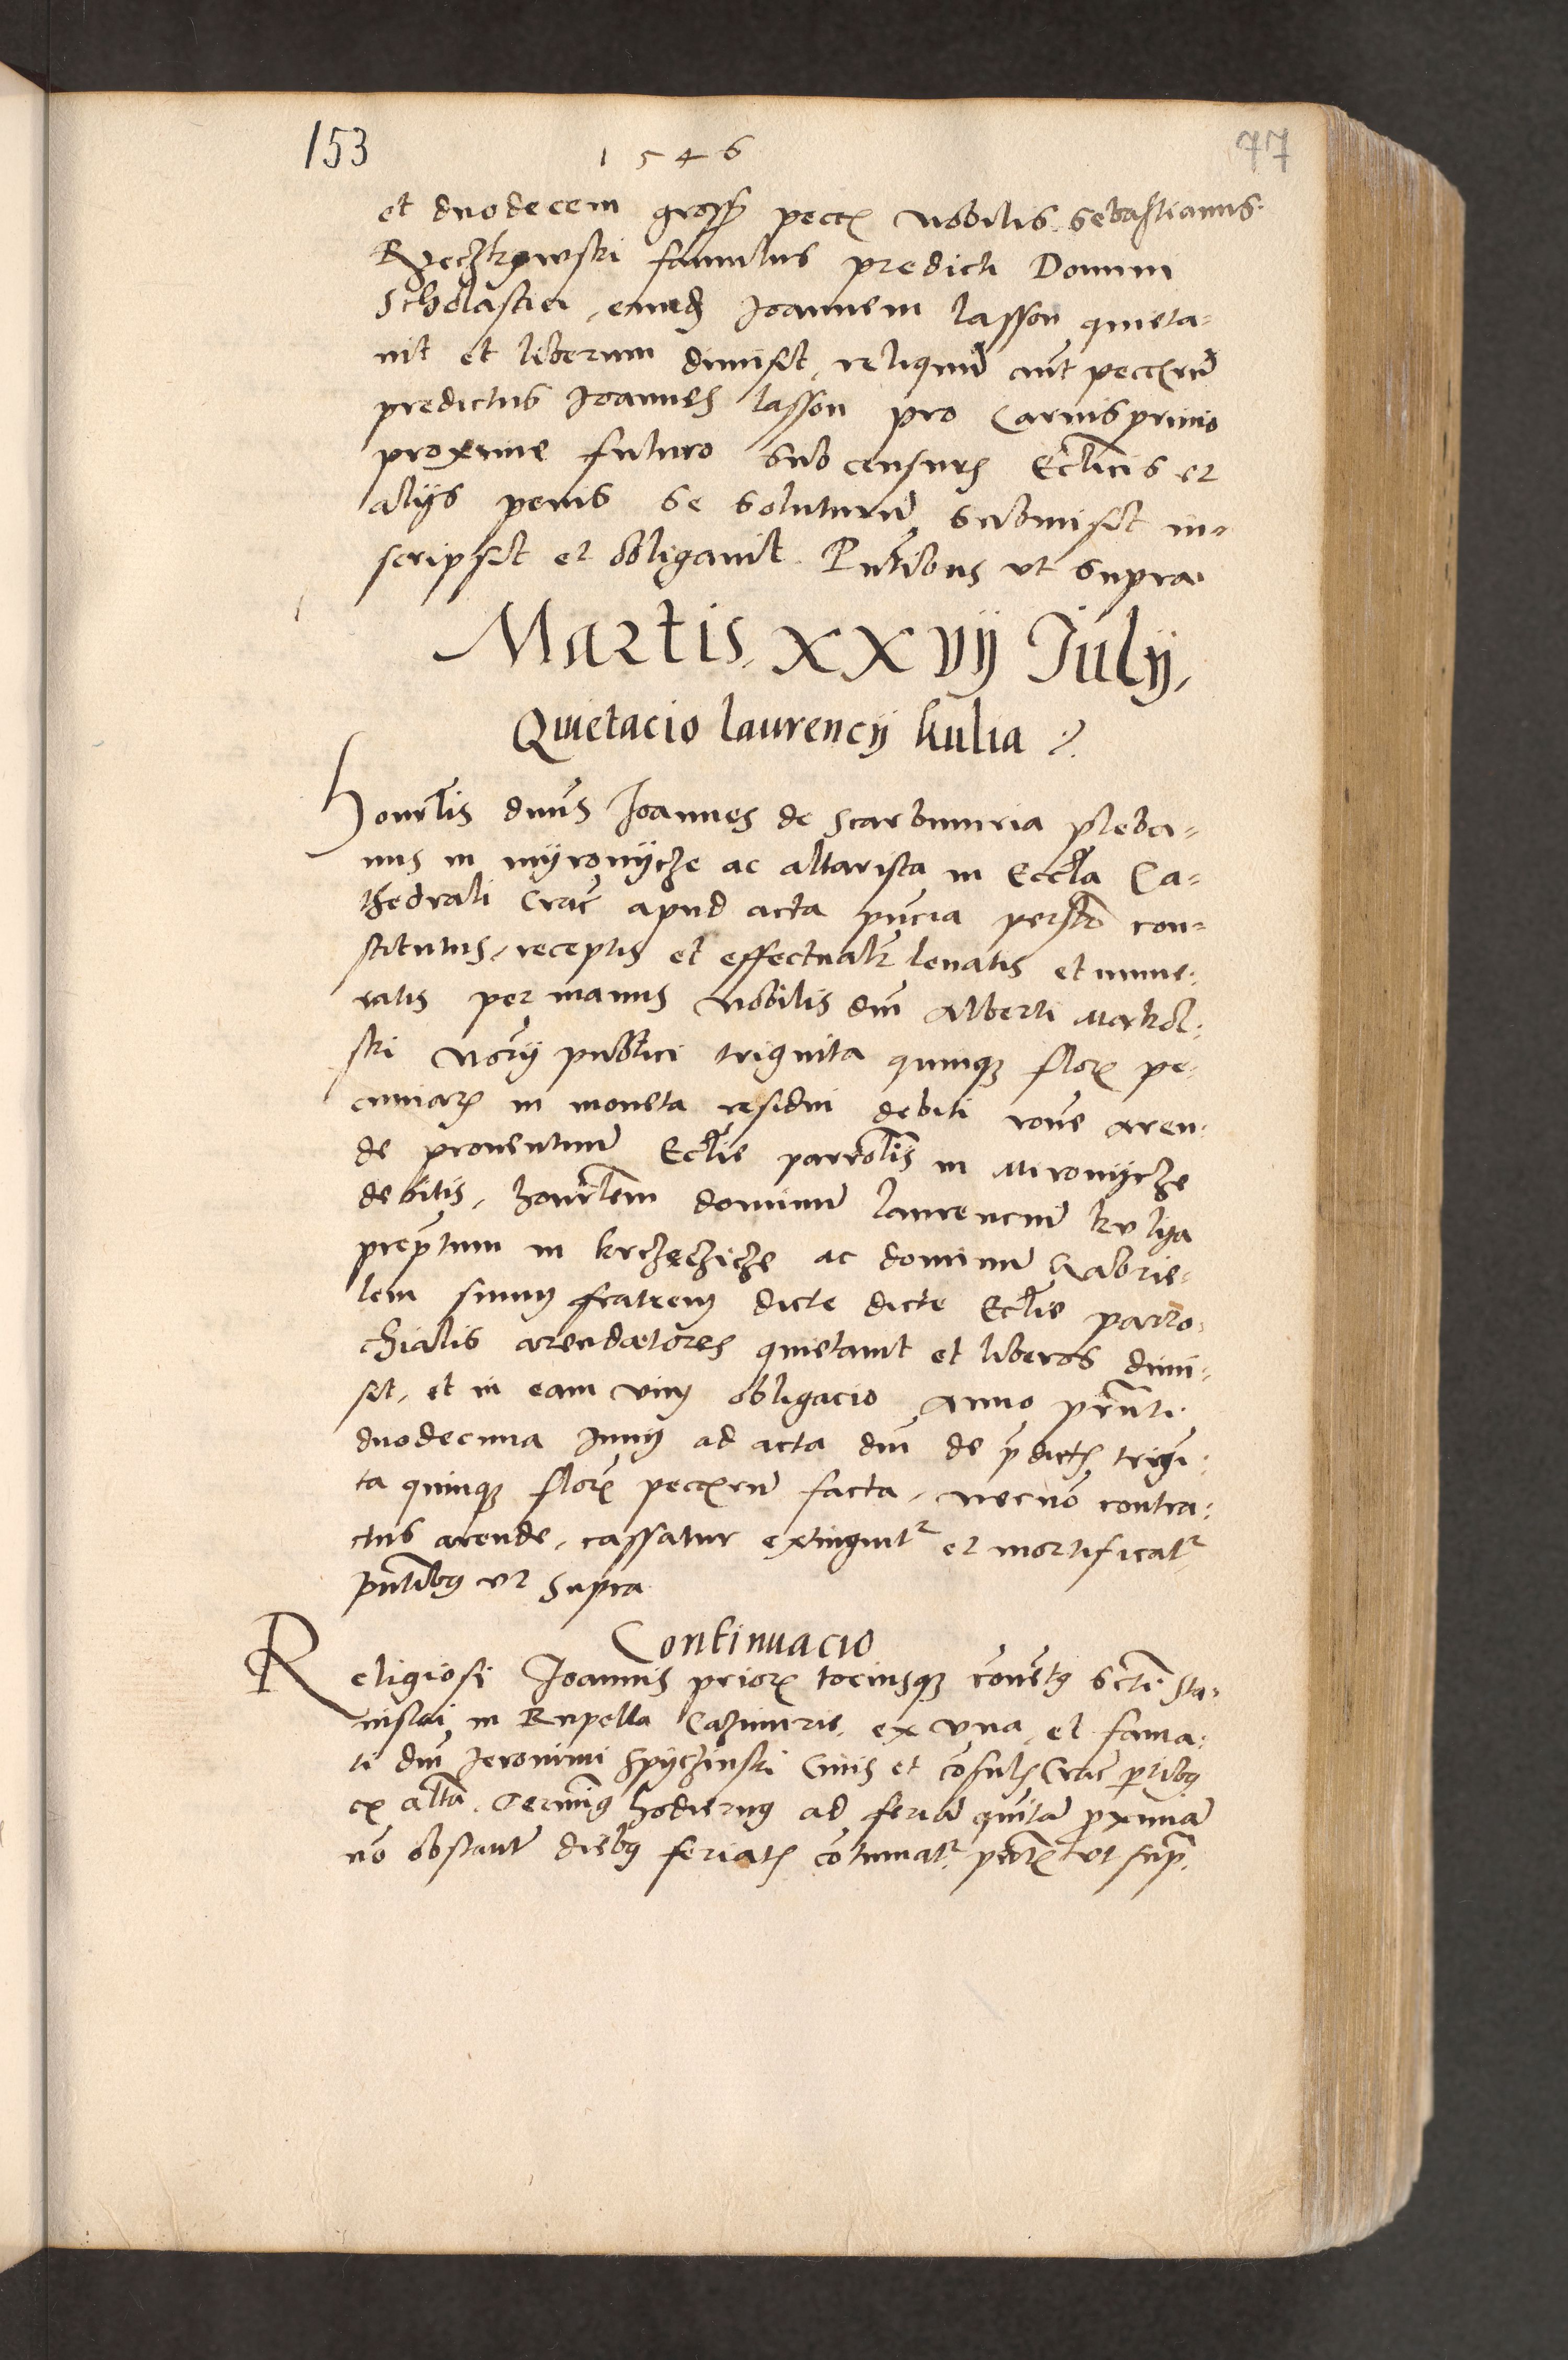 153
1546
77
et duodecem gross pecc nobilis Sebastianus
Rzeczkowski famulus predicti Domini
Scholastici, eundem Joannem lasson quieta-
vit et liberum dimisit, reliquum
predictus Joannes lasson pro Carnisprivio
proxime futuro sub censuris Ecclicis et
alijs penis se soluturum submisit in-
scripsit et obligavit. Pntibus ut supra.
Martis. XXVII Julij,
Quietacio laurencij kulia
Honrlis dnus Joannes de Scarbimiria pleba-
nus in myronijcze ac altarista in Eccla Ca-
thedrali Crac apud acta pncia persolr con-
stitutus, receptis et effectualr levatis et nume-
ratis per manus Nobilis dni Alberti Markol-
ski Norij publici triginta quinque flor pe-
cuniar in moneta residui debiti rone aren-
de proventuum Ecclie parrolis in Mironijcze
debitis, honrlem dominum laurencium kulya
preptum in krzczeczicze ac dominum Gabrie-
lem suum fratrem dicte dicte Ecclie parro-
chialis arendatores quietavit et liberos dimi-
sit, et in eam vim obligacio Anno prnti
duodecima Junij ad acta dni de pdictis trigin-
ta quinque flor peccrum facta, necno contra-
ctus arende, cassatur extinguitr et mortificatr
pntibus ut supra
Continuacio
Religiosi Joannis prioris tociusque coventus Scti Sta-
nislai in Rupella Cazimirie, ex una, et fama-
ti dni Jeronimi Spyczinski Civis et cosulis Crac partibus
ex altra, terminus hodiernus ad feriam quintam proximam
no obstante diebus feriatis cotinuatr, ut supra.